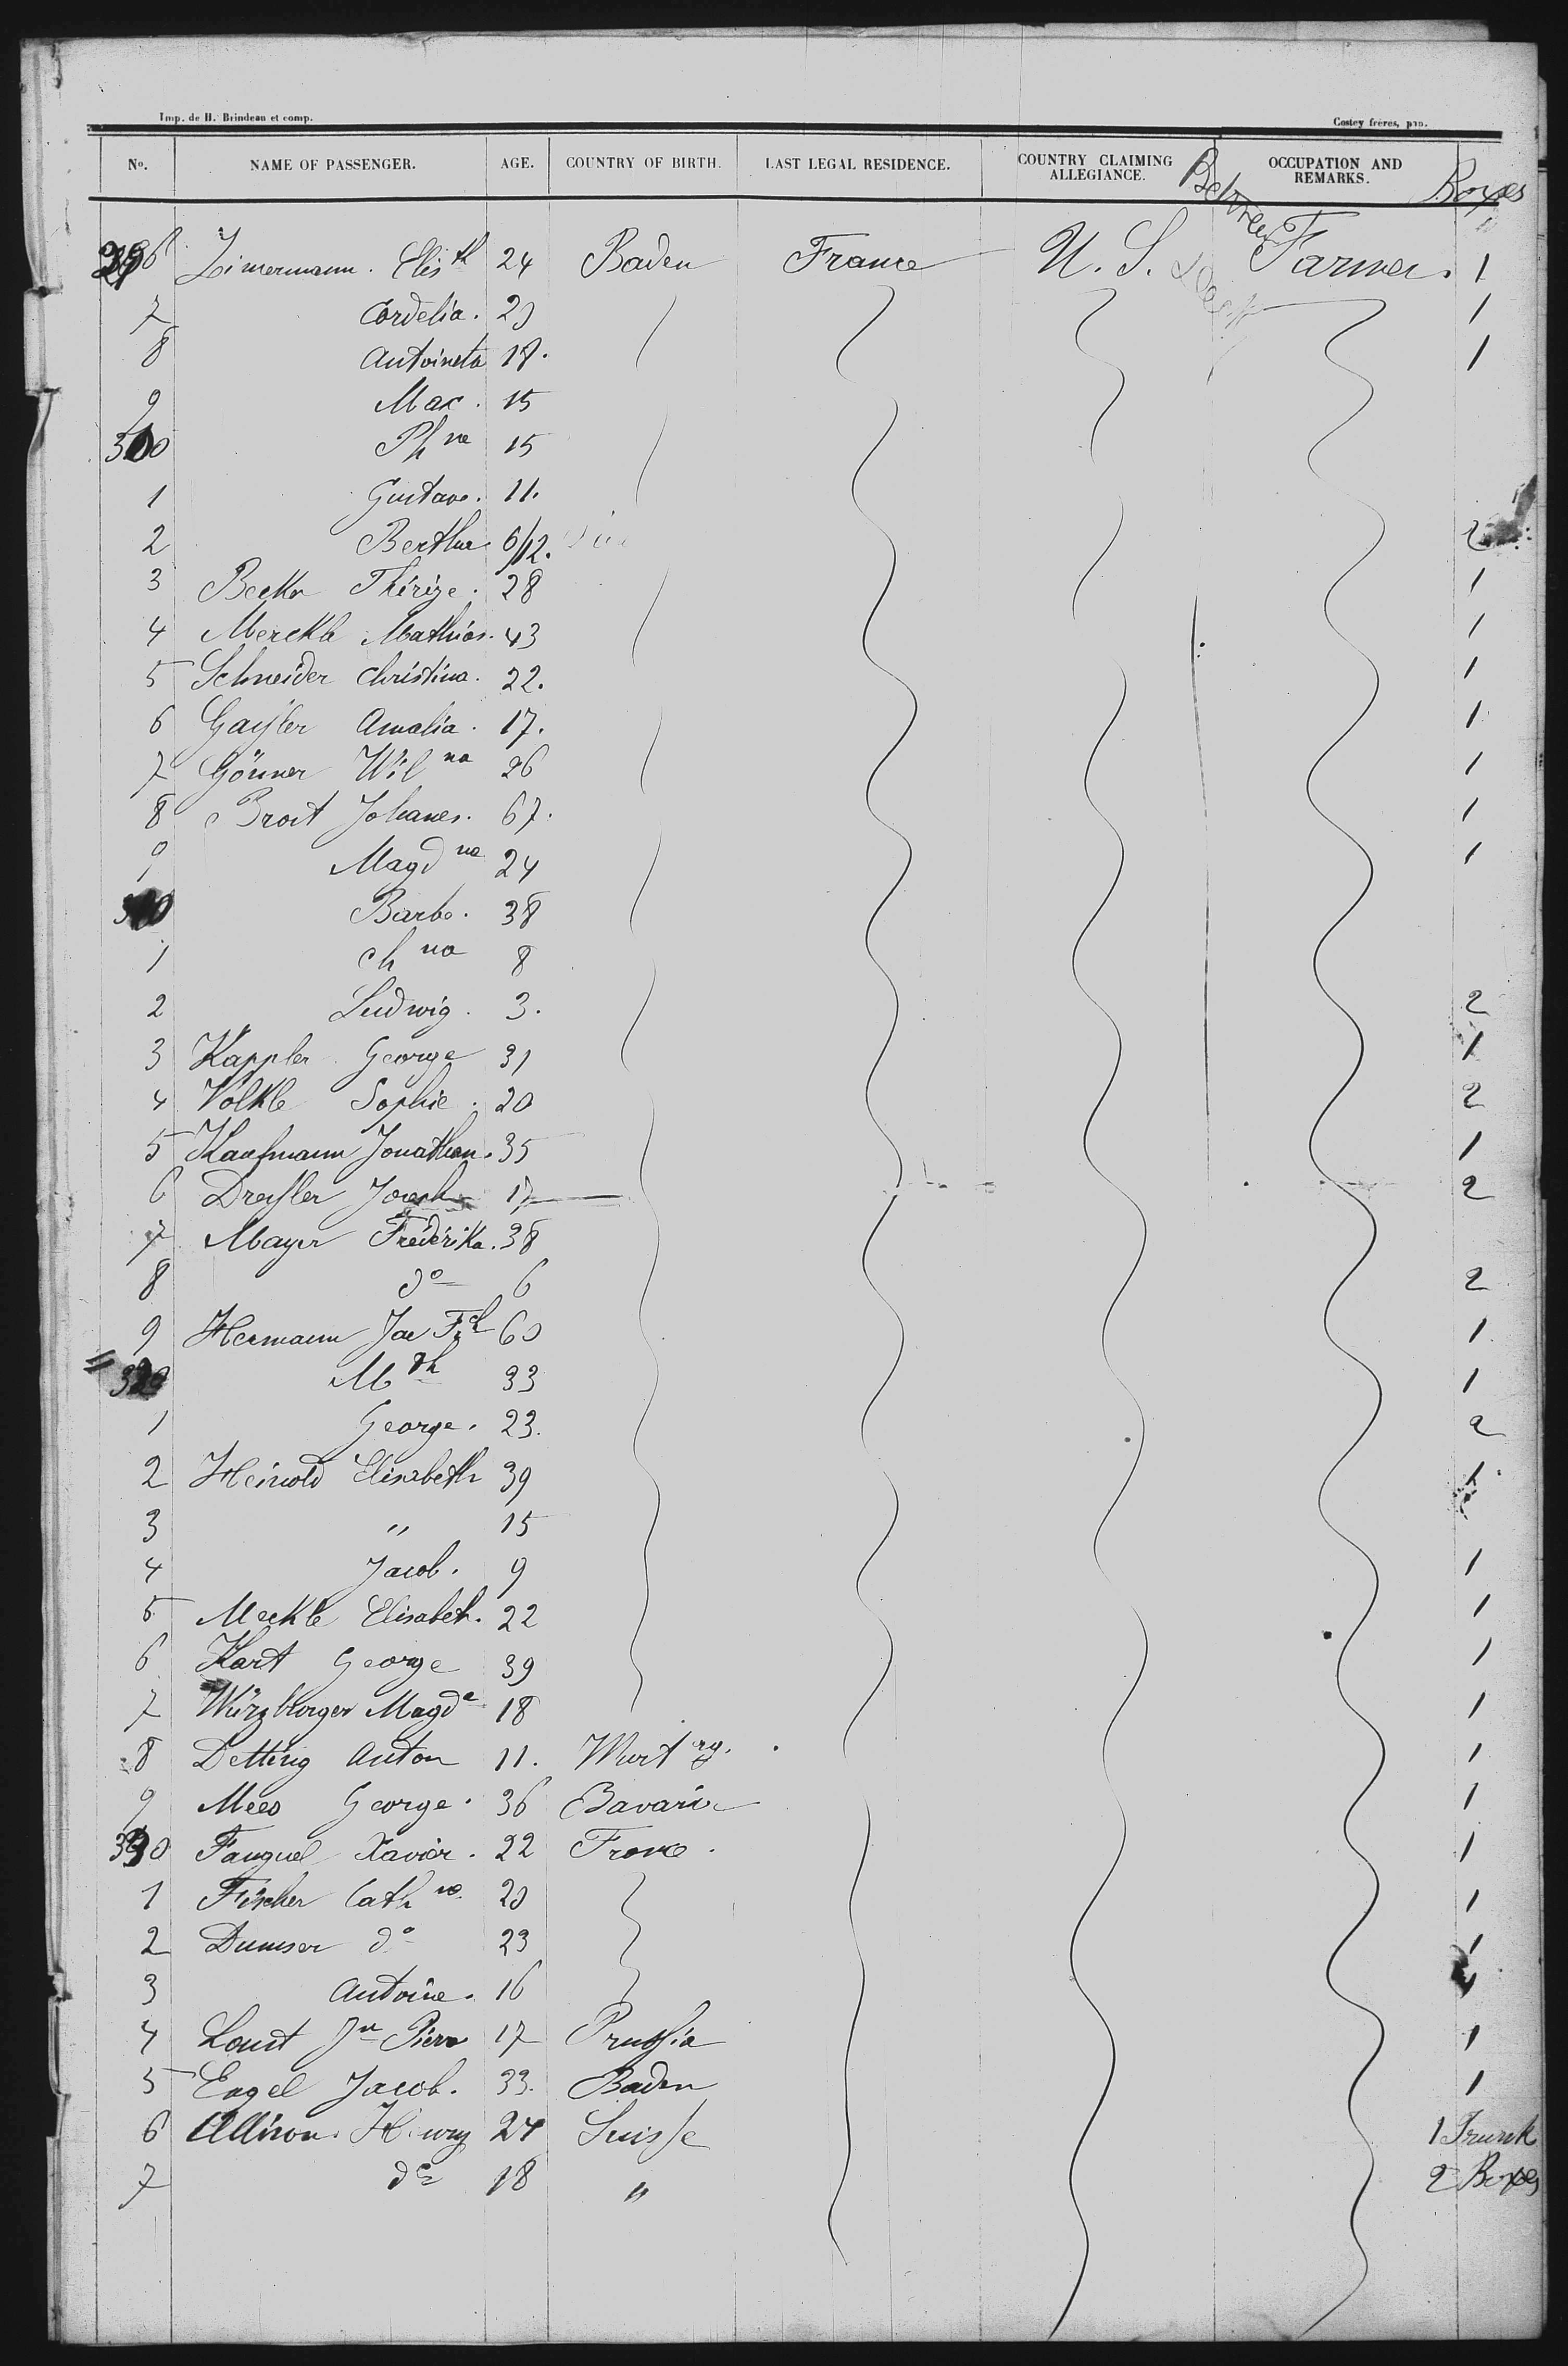 Imp. de H. Brindeau et comp.
Costey frères, pap.
No. NAME OF PASSENGER. AGE. COUNTRY OF BIRTH. LAST LEGAL RESIDENCE. COUNTRY CLAIMING ALLEGIANCE. OCCUPATION AND REMARKS. Boxes
Between Deck
296 Zimermann. Elisth 24 Baden France U. S. Farmer. 1
7 Cordelia. 20 1
8 Antoineta 18. 1
9 Max. 15
300 Phne 15
1 Gustave. 11.
2 Bertha 6/12. 2
3 Becko Thérèze. 28 1
4 Merckle Mathias. 43 1
5 Schneider Christina. 22. 1
6 Gaisler Amalia. 17. 1
7 Gönner Wilna 26 1
8 Broit Johanes. 67. 1
9 Magdna 24 1
310 Barbe. 38
1 Chna 8
2 Ludwig. 3. 2
3 Kappler George 31 1
4 Volkle Sophie. 20 2
5 Kaufmann Jonathan. 35 1
6 Dreisler Joseph 17 2
7 Mayer Fréderika. 38
8 do 6 2
9 Hermann Jac Fch 60 1
320 Mth 33 1
1 George. 23. 2
2 Heinold Elisabeth 39 1
3 " 15
4 Jacob. 9 1
5 Meckle Elisabeth. 22 1
6 Kart George 39 1
7 Würzburger Magde 18 1
8 Detting Anton 11. Wurtrg. 1
9 Mees George. 36 Bavaria 1
330 Fauguel Xavier. 22 France. 1
1 Fischer Cathne 20 1
2 Dumser do 23 1
3 Antoine. 16 1
4 Loust Jn Pierre 17 Prussia 1
5 Engel Jacob. 33. Baden 1
6 Allison Henry 24 Suisse 1 Trunk
7 do 18 " 2 Boxes